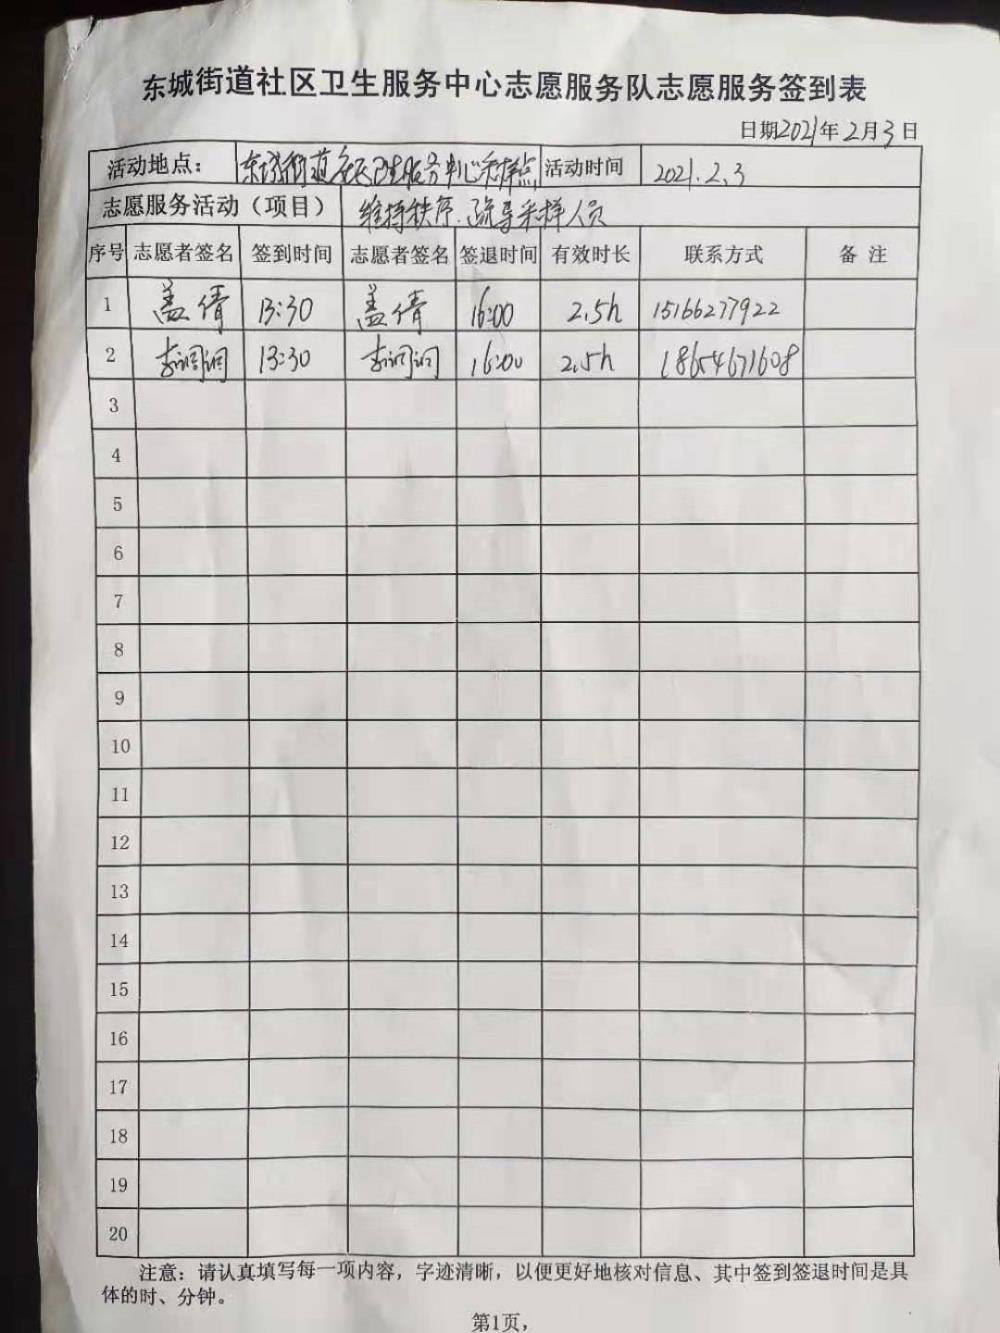 东城街道社区卫生服务中心志愿服务队志愿服务签到表
日期2021年2月3日
活动地点： 东城街道社区卫生服务中心采样点 活动时间 2021.2.3
志愿服务活动（项目） 维持秩序、疏导采样人员
序号 志愿者签名 签到时间 志愿者签名 签退时间 有效时长 联系方式 备 注
1 盖倩 13:30 盖倩 16:00 2.5h 15166277922
2 李润润 13:30 李润润 16:00 2.5h 18654671608
3
4
5
6
7
8
9
10
11
12
13
14
15
16
17
18
19
20
注意：请认真填写每一项内容，字迹清晰，以便更好地核对信息、其中签到签退时间是具
体的时、分钟。
第1页，